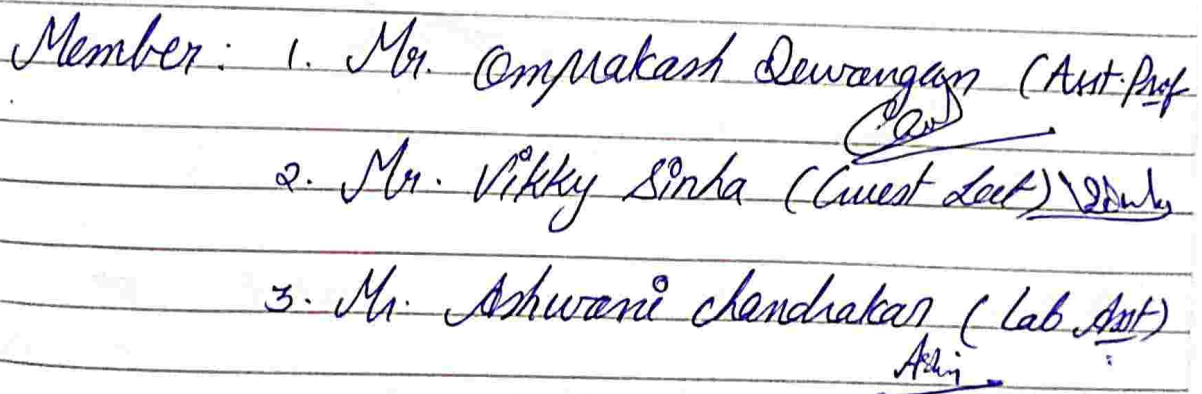 Member: 1. Mr. Omprakash Dewangan (Asst. Prof
2. Mr. Vikky Sinha (Guest Lect)
3. Mr. Ashwani Chandrakar (Lab Asst)